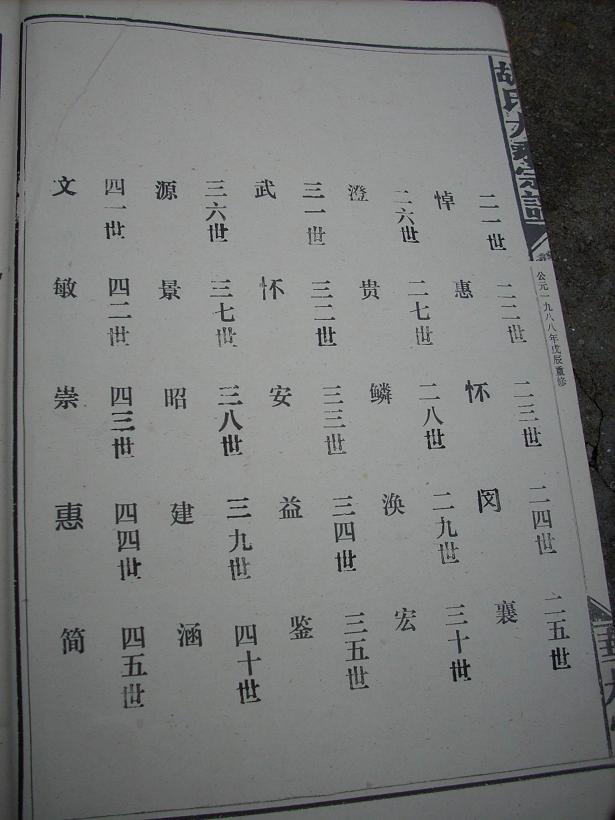 胡氏九宗譜
公元一九八八年戊辰重修
二一世 二二世 二三世 二四世 二五世
悼 惠 怀 闵 襄
二六世 二七世 二八世 二九世 三十世
澄 贵 鳞 涣 宏
三一世 三二世 三三世 三四世 三五世
武 怀 安 益 鉴
三六世 三七世 三八世 三九世 四十世
源 景 昭 建 涵
四一世 四二世 四三世 四四世 四五世
文 敏 崇 惠 简